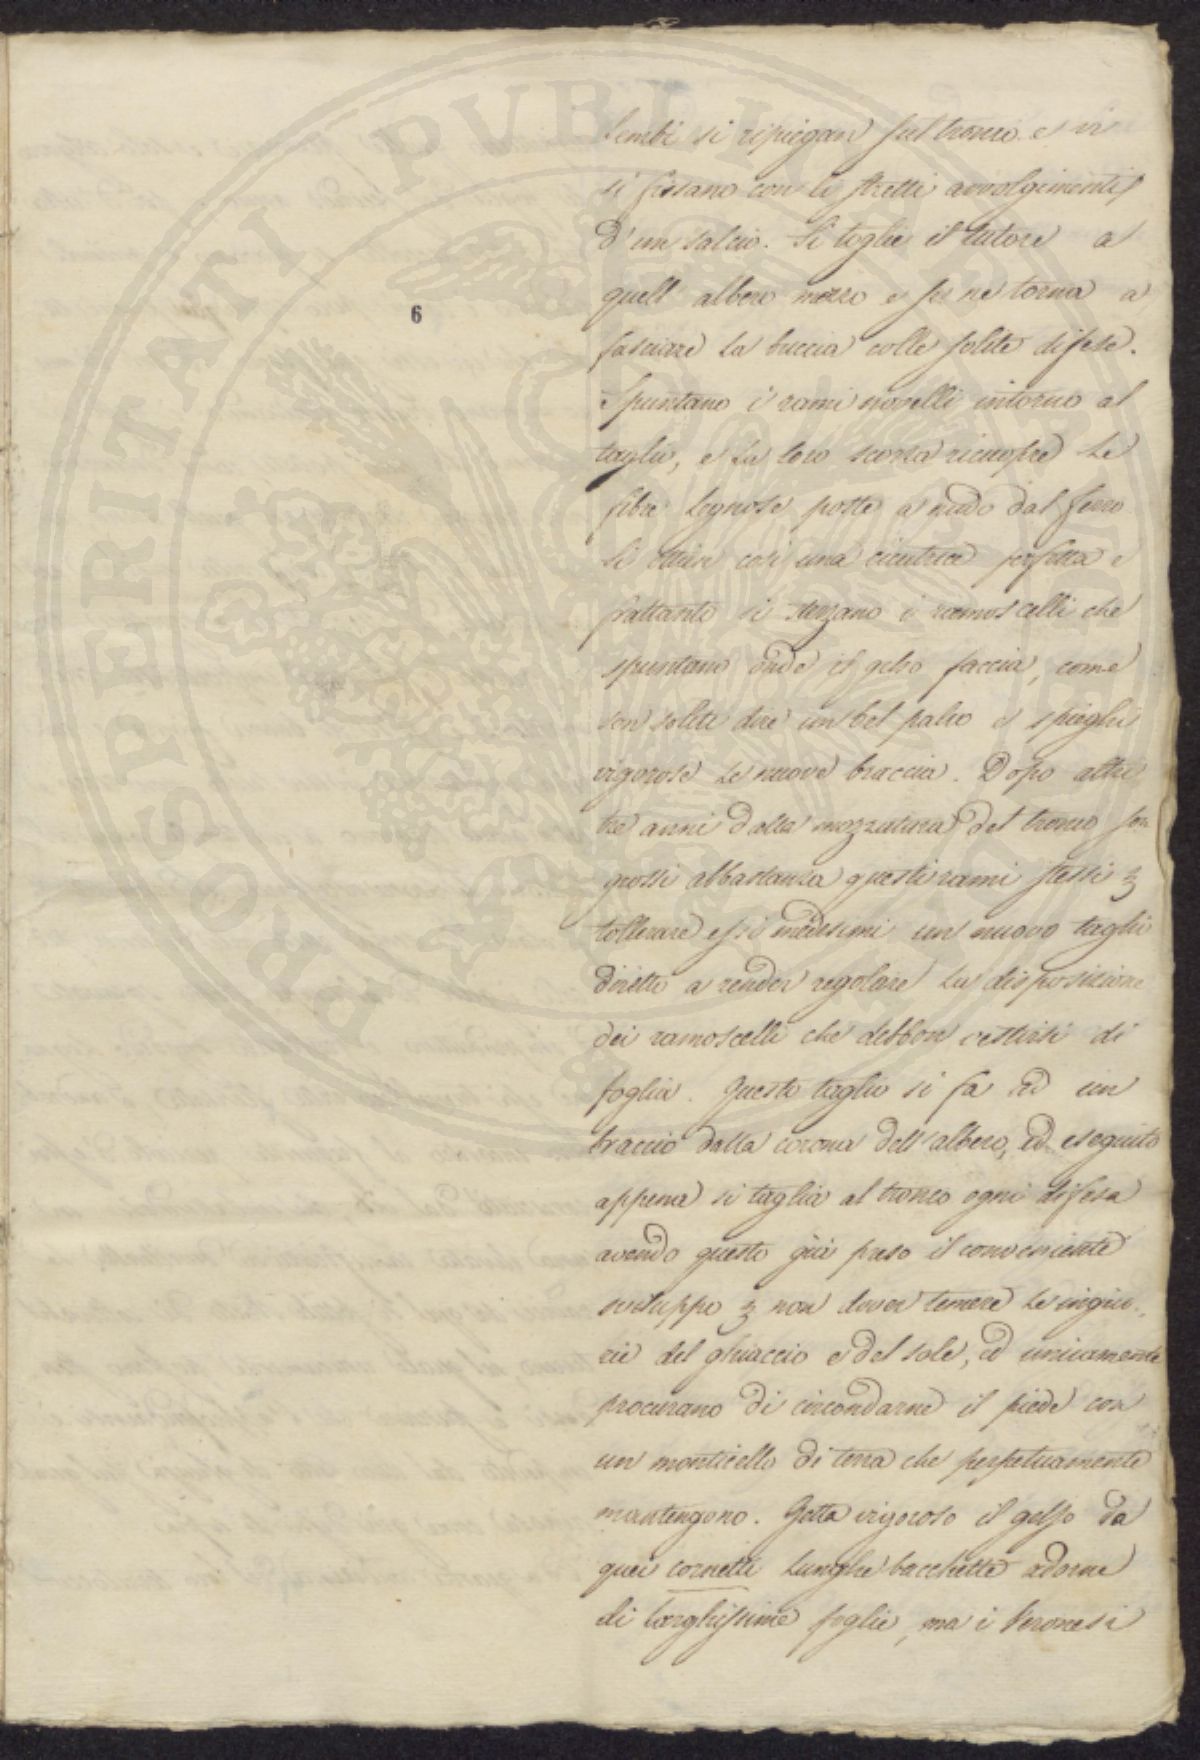 PROSPERITATI PUBLICAE
6
lembi si ripiegan sul tronco e vi
si fissano con li stretti avvolgimenti
d'un salcio. Si toglie il tutore a
quell'albero mozzo e se ne torna a
fasciare la buccia colle solite difese.
Spuntano i rami novelli intorno al
taglio, e la loro scorza ricuopre le
fibre legnose poste a nudo dal ferro
Si ottien così una cicatrice perfetta e
frattanto si sterzano i ramoscelli che
spuntano onde il gelso faccia, come
son soliti dire un bel palco e spieghi
vigorose le nuove braccia. Dopo altri
tre anni dalla mozzatura del tronco son
grossi abbastanza questi rami stessi
tollerare essi medesimi un nuovo taglio
diretto a render regolare la disposizione
dei ramoscelli che debbon vestirsi di
foglia. Questo taglio si fa ad un
braccio dalla corona dell'albero, ed eseguito
appena si taglia al tronco ogni difesa
avendo questo già preso il conveniente
sviluppo non dover temere le ingiu-
rie del ghiaccio e del sole, ed unicamente
procurano di circondarne il piede con
un monticello di terra che perpetuamente
mantengono. Getta vigoroso il gelso da
quei cornetti lunghe bacchette adorne
di larghissime foglie, ma i Veronesi